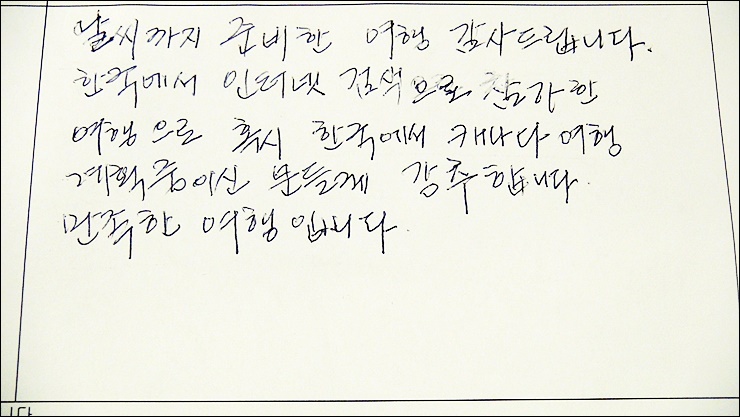 날씨까지 준비한 여행 감사드립니다.
한국에서 인터넷 검색으로 참가한
여행으로 혹시 한국에서 캐나다 여행
계획중이신 분들께 강추합니다.
만족한 여행입니다.